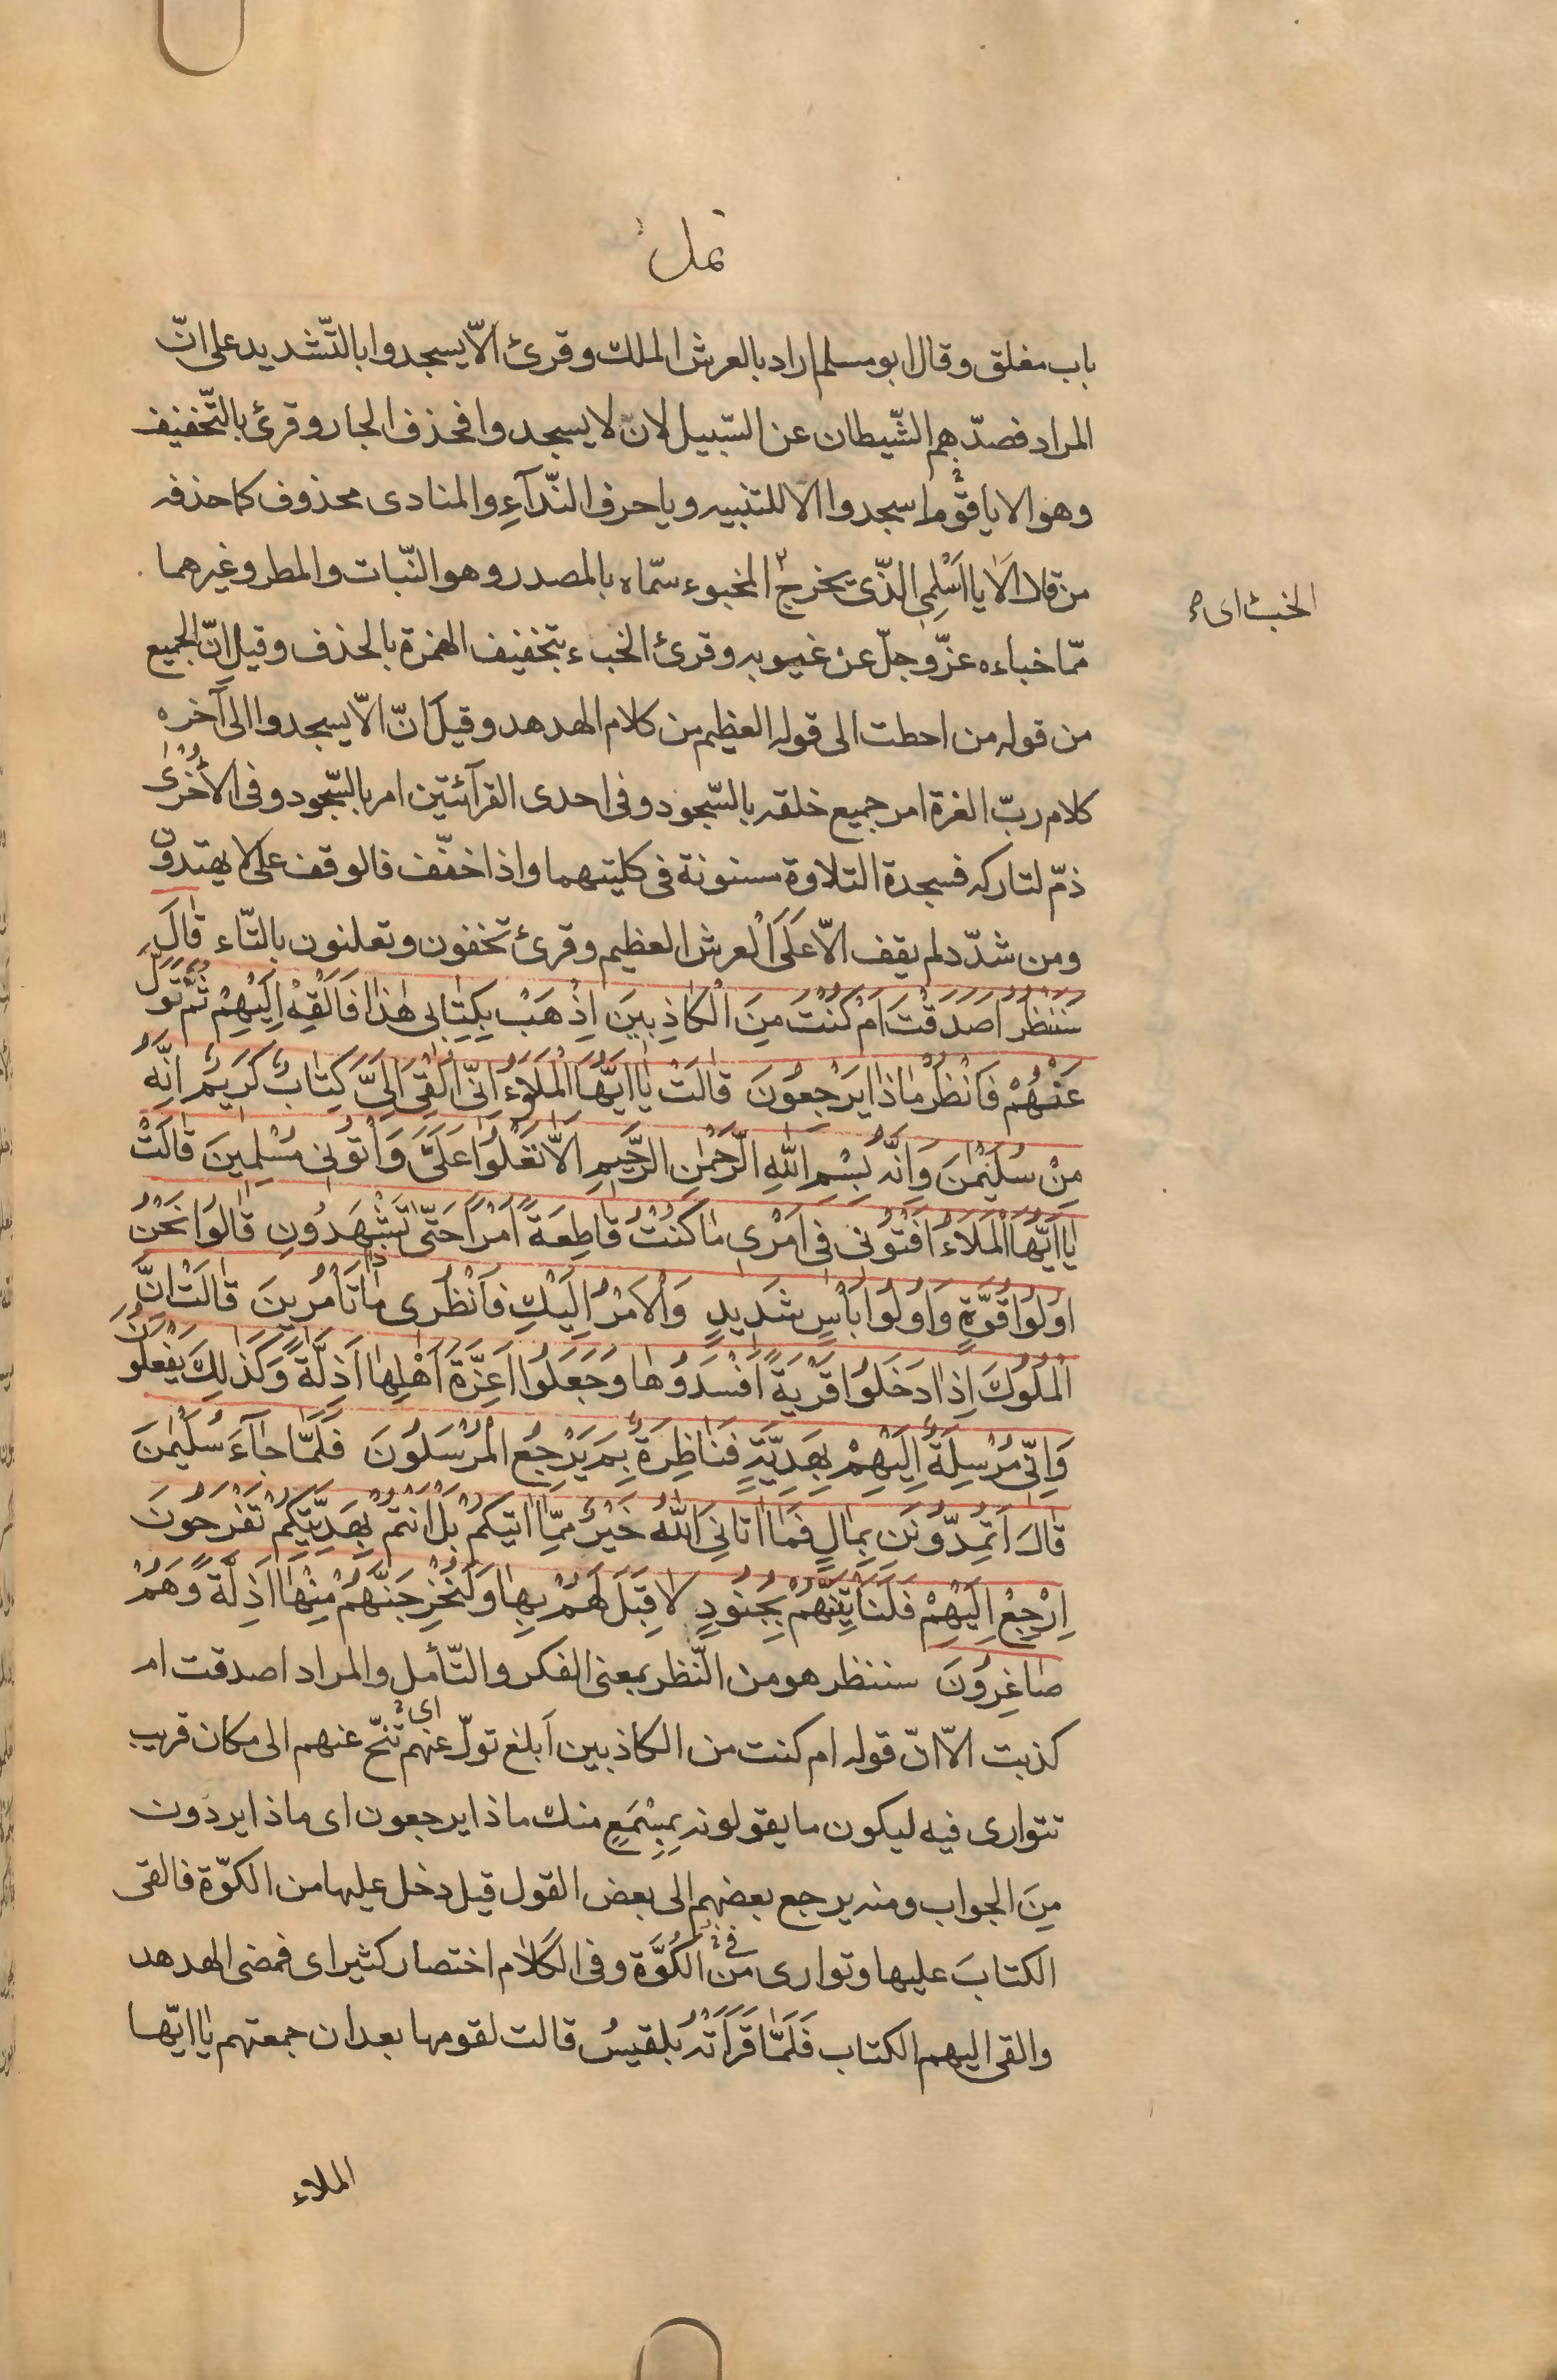 نمل
باب مغلق وقال ابو مسلم اراد بالعرش الملك وقرئ الّا يسجدوا بالتّشديد على انّ
المراد فصدّهم الشّيطان عن السّبيل لان لا يسجدوا فحذف الجار وقرئ بالتّخفيف
وهو الا يا قوم اسجدوا الا للتنبيه ويا حرف النّدآءِ والمنادى محذوف كما حذفه
من قال الَا يا اسْلمِى الذّى يخرج المخبوء سمّاه بالمصدر وهو النّبات والمطر وغيرهما
الخبء اى
ممّا خباءه عزّ وجلّ عن غيوبه وقرئ الخبء بتخفيف الهمزة بالحذف وقيل انّ الجميع
من قوله من احطت الى قوله العظيم من كلام الهدهد وقيل انّ الّا يسجدوا الى آخره
كلام ربّ العزة امر جميع خلقه بالسّجود وفى احدى القرآئتين امر بالسّجود وفى الأخرى
ذمّ لتاركه فسجدة التلاوة مسنونة فى كليتهما واذا خفّف فالوقف على لا يهتدون
ومن شدّد لم يقف الّا عَلَى الْعرش العظيم وقرئ تخفون وتعلنون بالتّاء قٰالَ
سَنَنْظُرُ اَصَدَقْتَ اَمْ كُنْتَ مِنَ الْكاذِبينَ اِذْهَبْ بِكِتٰابى هٰذٰا فَاَلْقِهْ اِلَيْهِمْ ثُمَّ تَوَلَّ
عَنْهُمْ فَانْظُرْ مٰاذٰا يَرْجِعُونَ قٰالَتْ يٰا اَيُّهَا الْمَلَؤُ اِنّى اُلْقِىَ اِلَىَّ كِتٰابٌ كَريمٌ اِنَّهُ
مِنْ سُلَيْمٰنَ وَاِنَّهُ بِسْمِ اللّٰهِ الرَّحْمٰنِ الرَّحيمِ اَلّٰا تَعْلُوا عَلَىَّ وَاْتُونى مُسْلِمينَ قٰالَتْ
يٰا اَيُّهَا الْمَلَاءُ اَفْتُونى فى اَمْرى مٰا كُنْتُ قٰاطِعَةً اَمْراً حَتّٰى تَشْهَدُونِ قٰالُوا نَحْنُ
اُولُوا قُوَّةٍ وَاُولُوا بَاْسٍ شَديدٍ وَالْاَمْرُ اِلَيْكِ فَانْظُرى مٰاذٰا تَاْمُرينَ قٰالَتْ اِنَّ
الْمُلُوكَ اِذٰا دَخَلُوا قَرْيَةً اَفْسَدُوهٰا وَجَعَلُوا اَعِزَّةَ اَهْلِهٰا اَذِلَّةً وَكَذٰلِكَ يَفْعَلُونَ
وَاِنّى مُرْسِلَةٌ اِلَيْهِمْ بِهَدِيَّةٍ فَنٰاظِرَةٌ بِمَ يَرْجِعُ الْمُرْسَلُونَ فَلَمّٰا جٰآءَ سُلَيْمٰنَ
قٰالَ اَتُمِدُّونَنِ بِمٰالٍ فَمٰا اٰتٰانِىَ اللّٰهُ خَيْرٌ مِمّٰا اٰتٰيكُمْ بَلْ اَنْتُمْ بِهَدِيَّتِكُمْ تَفْرَحُونَ
اِرْجِعْ اِلَيْهِمْ فَلَنَاْتِيَنَّهُمْ بِجُنُودٍ لٰا قِبَلَ لَهُمْ بِهٰا وَلَنُخْرِجَنَّهُمْ مِنْهٰا اَذِلَّةً وَهُمْ
صٰاغِرُونَ سننظر هو من النّظر بمعنى الفكر والتّأمل والمراد اصدقت ام
كذبت الّا انّ قوله ام كنت من الكاذبين اَبلغ تولّ عنهم اى تنحّ عنهم الى مكان قريب
تتوارى فيه ليكون ما يقولونه بِمِسْمَعٍ منك ماذا يرجعون اى ماذا يردّون
مِنَ الجواب ومنه يرجع بعضهم الى بعض القول قيل دخل عليها من الكوّة فالقى
الكتابَ عليها وتوارى فى من الكُوَّة وفى الكلام اختصار كثير اى فمضى الهدهد
والقى اليهم الكتاب فَلَمّٰا قَرَاَتْهُ بلقيسُ قالت لقومها بعد ان جمعتهم يٰا ايّها
الملاء